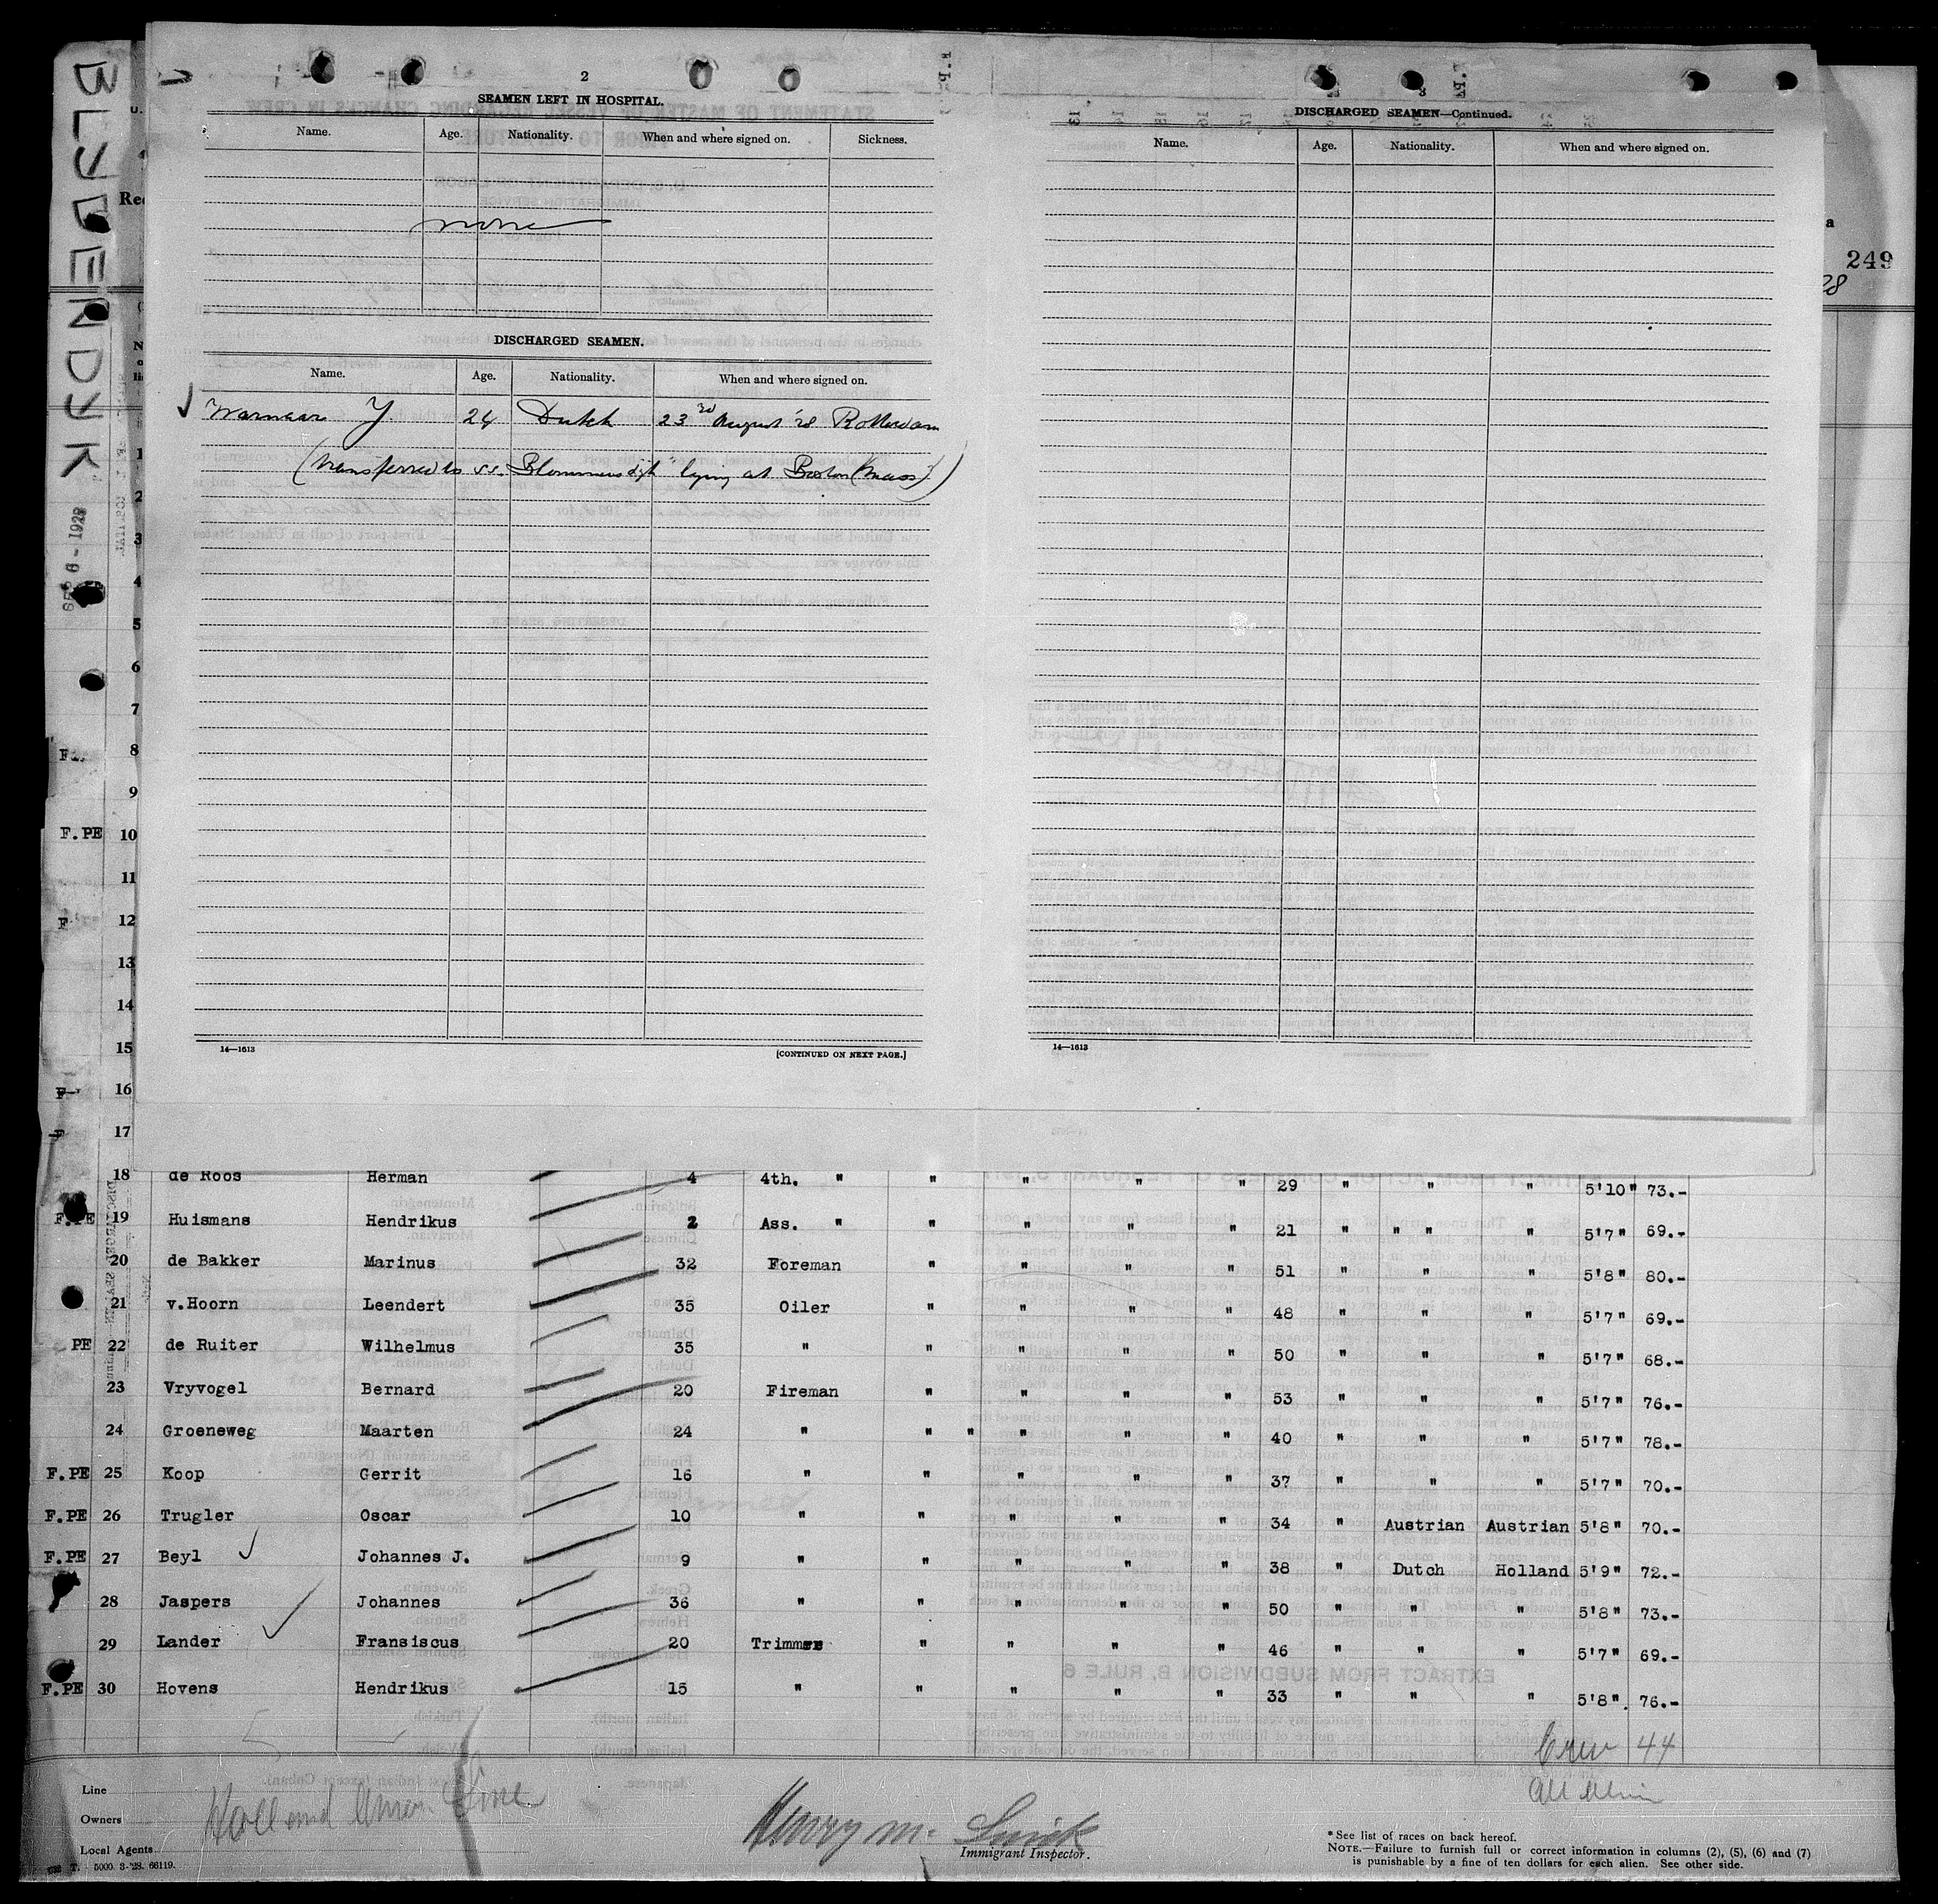 BLYDENDYK
SEP 6 - 1928
2
SEAMEN LEFT IN HOSPITAL.
Name. Age. Nationality. When and where signed on. Sickness.
none
DISCHARGED SEAMEN.
Name. Age. Nationality. When and where signed on.
Warnaar Y. 24 Dutch 23rd August '28 Rotterdam
(transferred to s.s. "Blommersdyk" lying at Boston (Mass))
14—1613 [CONTINUED ON NEXT PAGE.]
3
DISCHARGED SEAMEN—Continued.
Name. Age. Nationality. When and where signed on.
14—1613
249
28
1
2
3
4
5
6
7
8
9
F.PE 10
11
F 12
13
14
15
F 16
F 17
18 de Roos Herman 4 4th. " " " " " 29 " " " 5'10" 73.-
F.PE 19 Huismans Hendrikus 2 Ass. " " " " " 21 " " " " 5'7" 69.-
20 de Bakker Marinus 32 Foreman " " " " 51 " " " 5'8" 80.-
21 v.Hoorn Leendert 35 Oiler " " " " 48 " " " 5'7" 69.-
PE 22 de Ruiter Wilhelmus 35 " " " " " 50 " " " 5'7" 68.-
23 Vryvogel Bernard 20 Fireman " " " " 53 " " " 5'7" 76.-
24 Groeneweg Maarten 24 " " " " " " 40 " " " 5'7" 78.-
F.PE 25 Koop Gerrit 16 " " " " " 37 " " " 5'7" 70.-
F.PE 26 Trugler Oscar 10 " " " " " 34 " Austrian Austrian 5'8" 70.-
F.PE 27 Beyl Johannes J. 9 " " " " " 38 " Dutch Holland 5'9" 72.-
28 Jaspers Johannes 36 " " " " " 50 " " " 5'8" 73.-
29 Lander Fransiscus 20 Trimmer " " " " 46 " " " 5'7" 69.-
F.PE 30 Hovens Hendrikus 15 " " " " " 33 " " " 5'8". 76.-
Crew 44
All
Line
Owners Holland Amer. Line
Local Agents
5000. 3-'28. 66119.
Immigrant Inspector.
* See list of races on back hereof.
NOTE.—Failure to furnish full or correct information in columns (2), (5), (6) and (7)
is punishable by a fine of ten dollars for each alien. See other side.